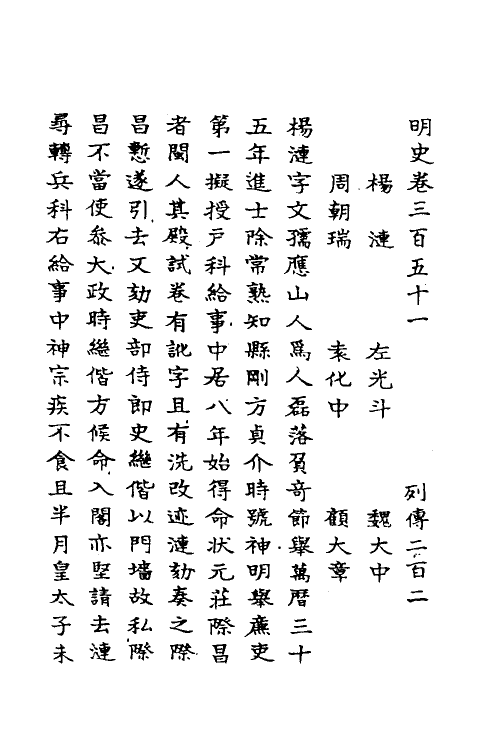 明史卷三百五十一 列傳二百二
楊漣 左光斗 魏大中
周朝瑞 袁化中 顧大章
楊漣字文孺應山人爲人磊落負奇節舉萬曆三十
五年進士除常熟知縣剛方貞介時號神明舉廉吏
第一擬授戶科給事中居八年始得命狀元莊際昌
者閩人其殿試卷有訛字且有洗改迹漣劾奏之際
昌慙遂引去又劾吏部侍郎史繼偕以門墻故私際
昌不當使叅大政時繼偕方候命入閣亦堅請去漣
尋轉兵科右給事中神宗疾不食且半月皇太子未